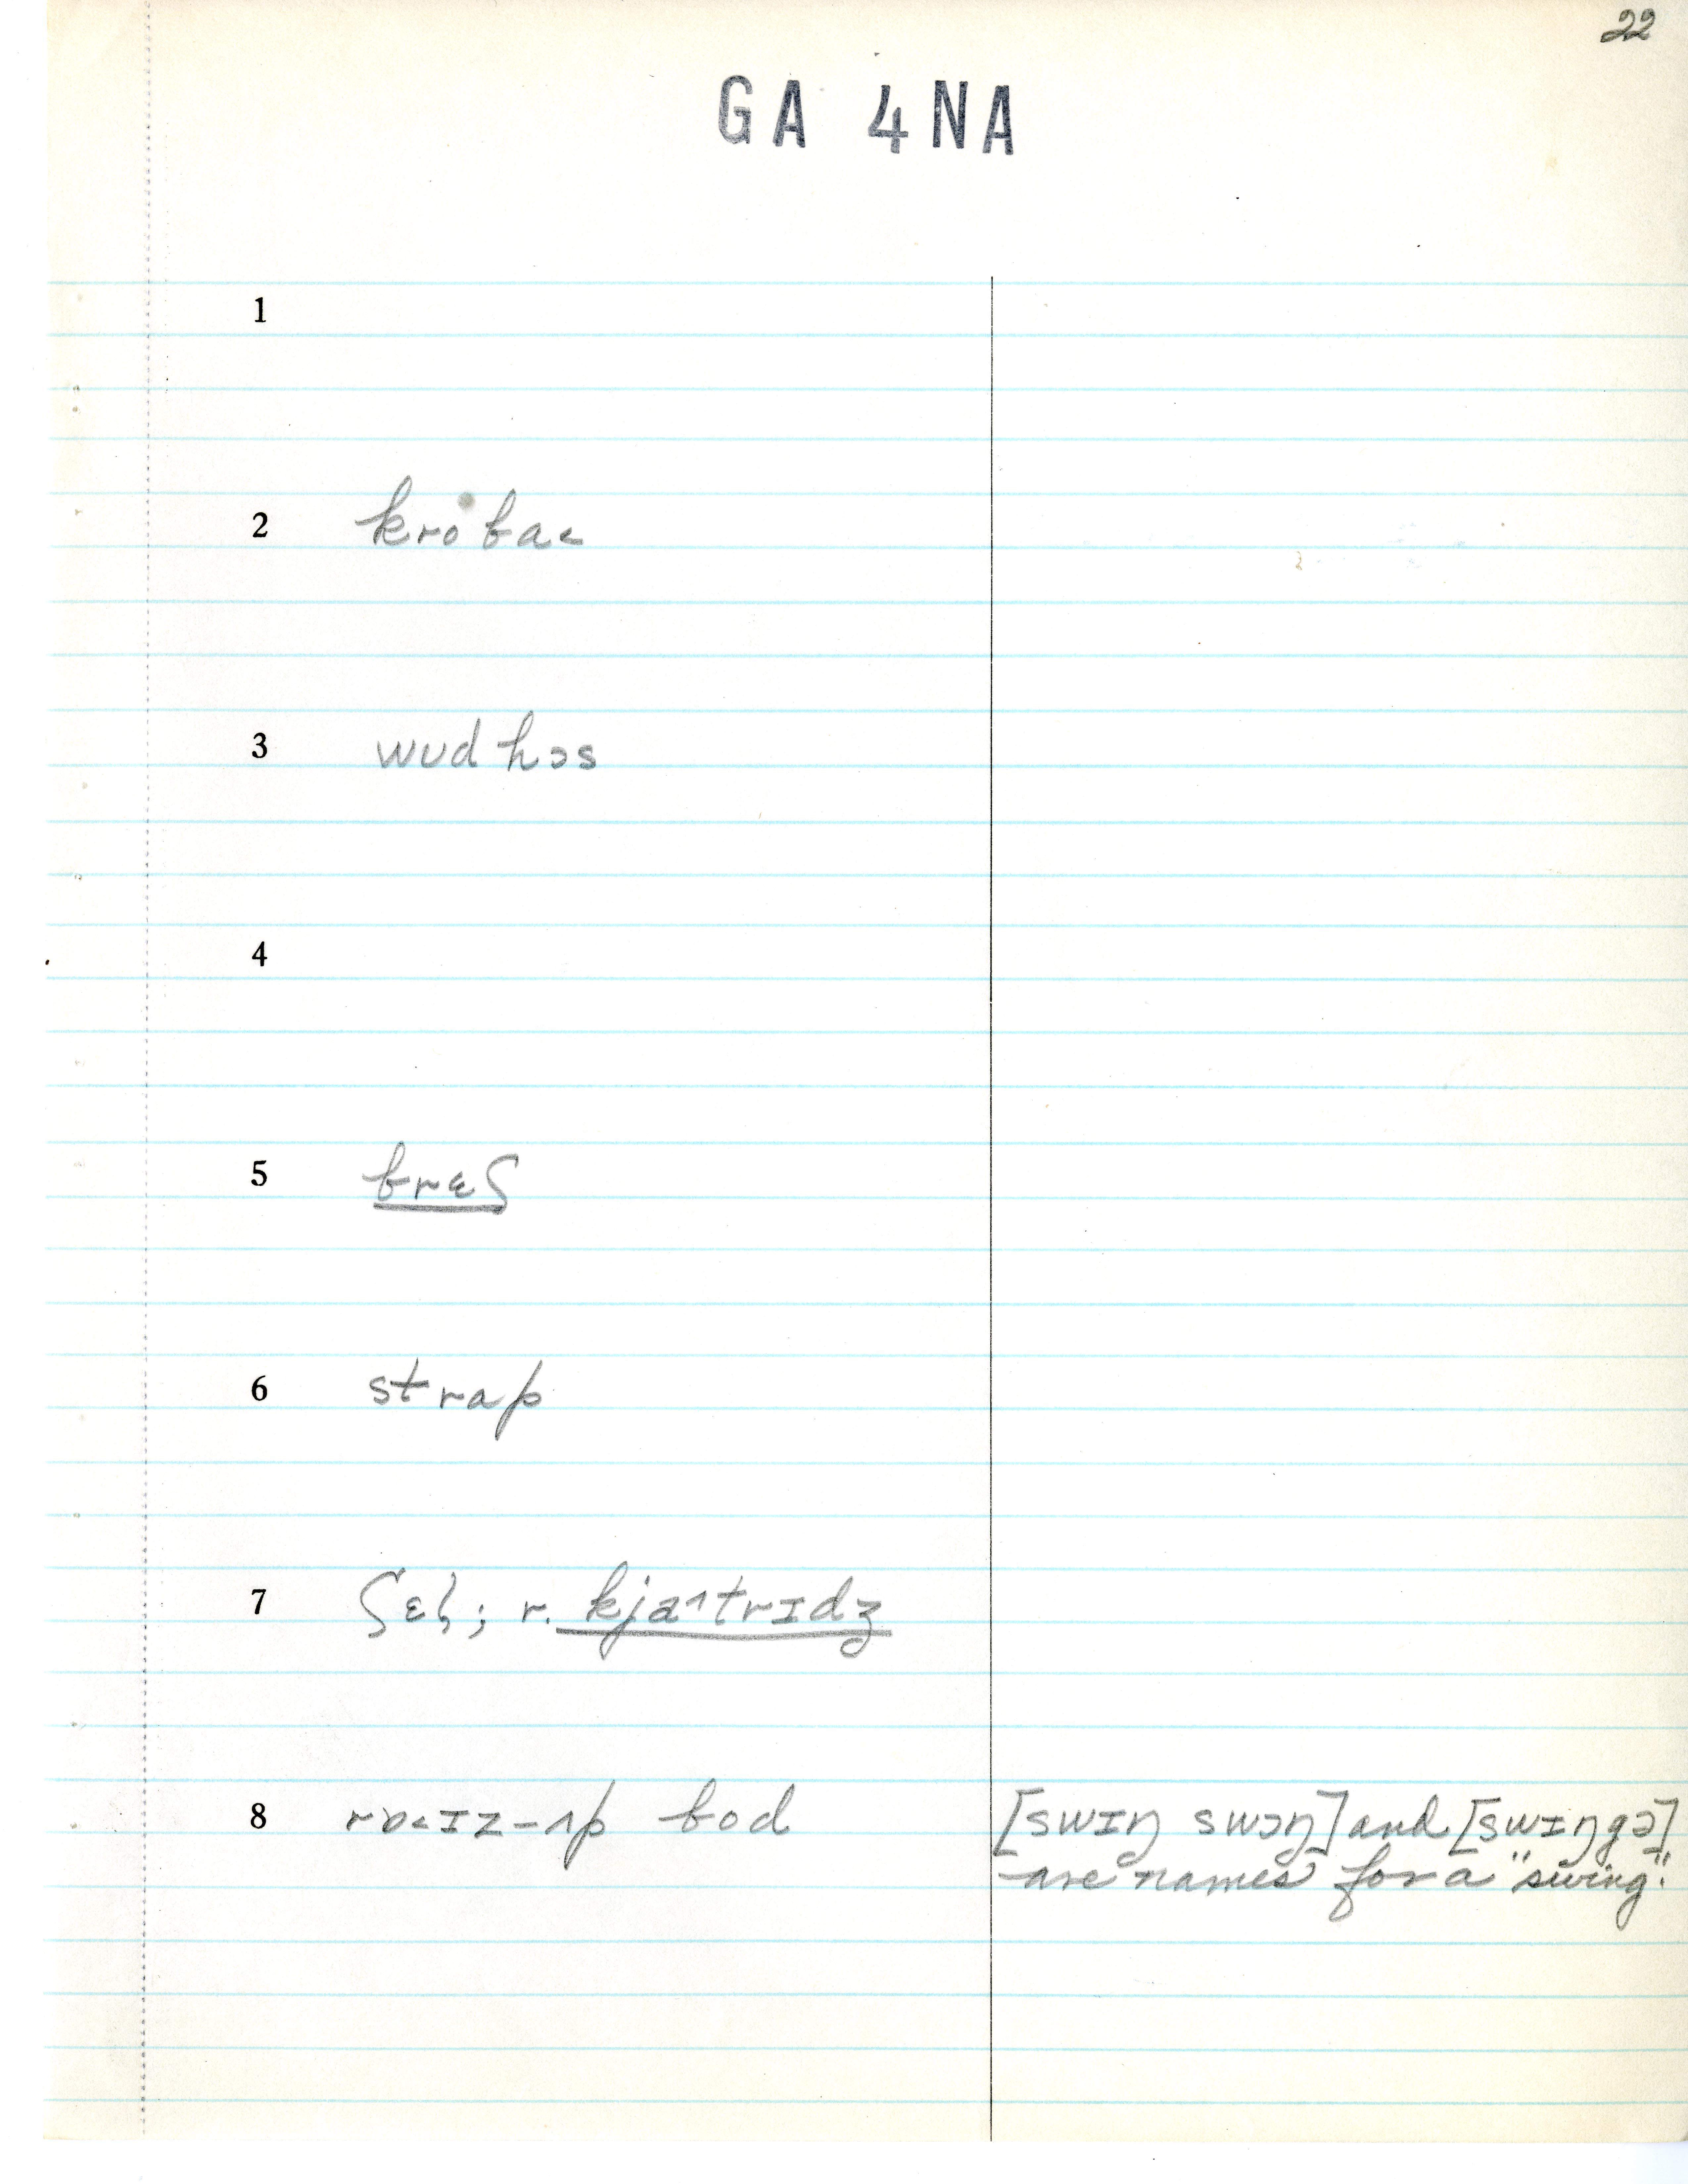 22
GA 4NA
1
2 kro bac
3 wʊd hɔs
4
5 brɛʃ
6 strap
7 ʃɛl; r. kjaʌtrɪdʒ
8 rɒ<ɪz-ʌp bod [swɪŋ swɔŋ] and [swɪŋgə]
are names for a "swing."